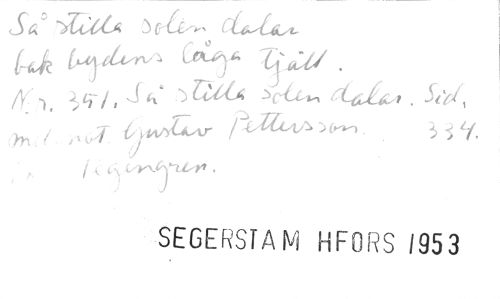 Så stilla solen dalar
bak bydens låga tjäll.
Nr. 351. Så stilla solen dalar. Sid.
mel. not. Gustav Pettersson. 334.
Tegengren.
SEGERSTAM HFORS 1953